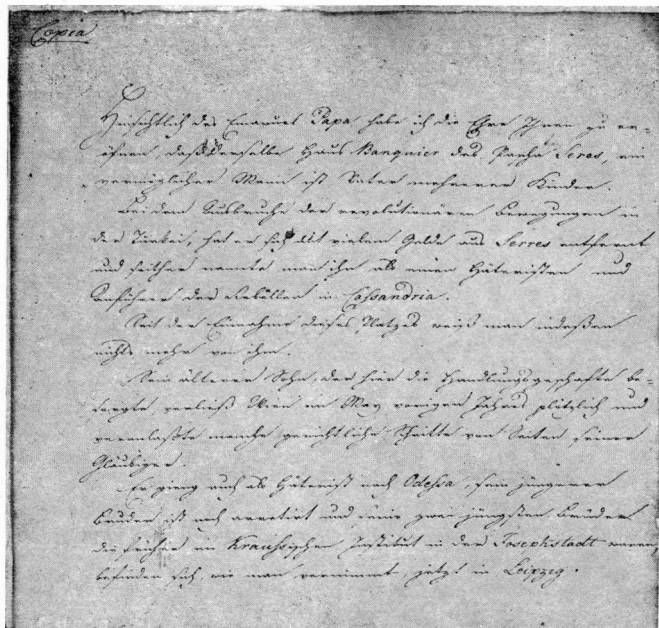 Copia
Hinsichtlich des Emanuel Papa habe ich die Ehre Ihnen zu er-
öhnen, daß derselbe Haus Banquier des Pascha Seres, ein
vermöglicher Mann ist Vater mehrerer Kinder.
Bei dem Ausbruche der revolutionären Bewegungen in
der Türkei, hat er sich mit vielem Gelde aus Serres entfernt
und seither nannte man ihn als einen Häteristen und
Anführer der Rebellen in Cassandria.
Seit der Einnahme dieses Platzes weiß man indeßen
nichts mehr von ihm.
Sein älterer Sohn, der hier die Handlungsgeschäfte be-
sorgte verließ Wien im May vorigen Jahres plötzlich und
veranlaßte manche gerichtliche Schritte von Seiten seiner
Gläubiger.
Er gieng auch als Häterist nach Odessa, sein jüngerer
Bruder ist noch arretirt und seine zwei jüngsten Brüder
die früher im Kraussischen Institut in der Josephstadt waren,
befinden sich, wie man vernimmt, jetzt in Leipzig.